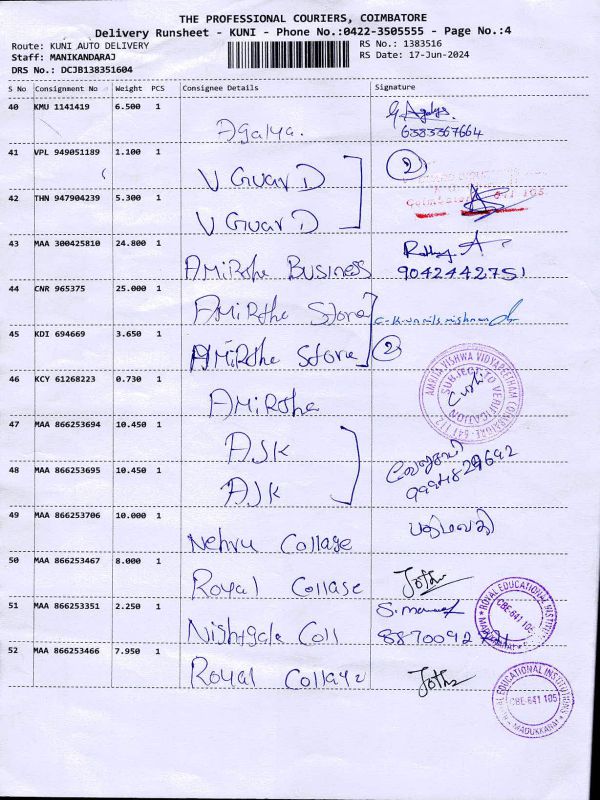 THE PROFESSIONAL COURIERS, COIMBATORE
Delivery Runsheet - KUNI - Phone No.:0422-3505555 - Page No.:4
Route: KUNI AUTO DELIVERY
Staff: MANIKANDARAJ
DRS No.: DCJB138351604
RS No.: 1383516
RS Date: 17-Jun-2024
S No Consignment No Weight PCS Consignee Details Signature
40 KMU 1141419 6.500 1 Agalya. 6383367664
41 VPL 949051189 1.100 1 V GuarD 2
42 THN 947904239 5.300 1 V GuarD
43 MAA 300425810 24.800 1 AMiRtha Business 9042442751
44 CNR 965375 25.000 1 AMiRtha Store
45 KDI 694669 3.650 1 AMiRtha Store 2
46 KCY 61268223 0.730 1 AMiRtha
AMRITA VISHWA VIDYAPEETHAM COIMBATORE - 641 112
SUBJECT TO VERIFICATION
47 MAA 866253694 10.450 1 AJK
48 MAA 866253695 10.450 1 AJK
49 MAA 866253706 10.000 1 Nehru Collage
50 MAA 866253467 8.000 1 Royal Collage Jothi
51 MAA 866253351 2.250 1 Nightgale Coll
ROYAL EDUCATIONAL INSTITUTIONS
CBE-641 105
MADUKKARAI
52 MAA 866253466 7.950 1 Royal Collage Jothi
ROYAL EDUCATIONAL INSTITUTIONS
CBE-641 105
MADUKKARAI